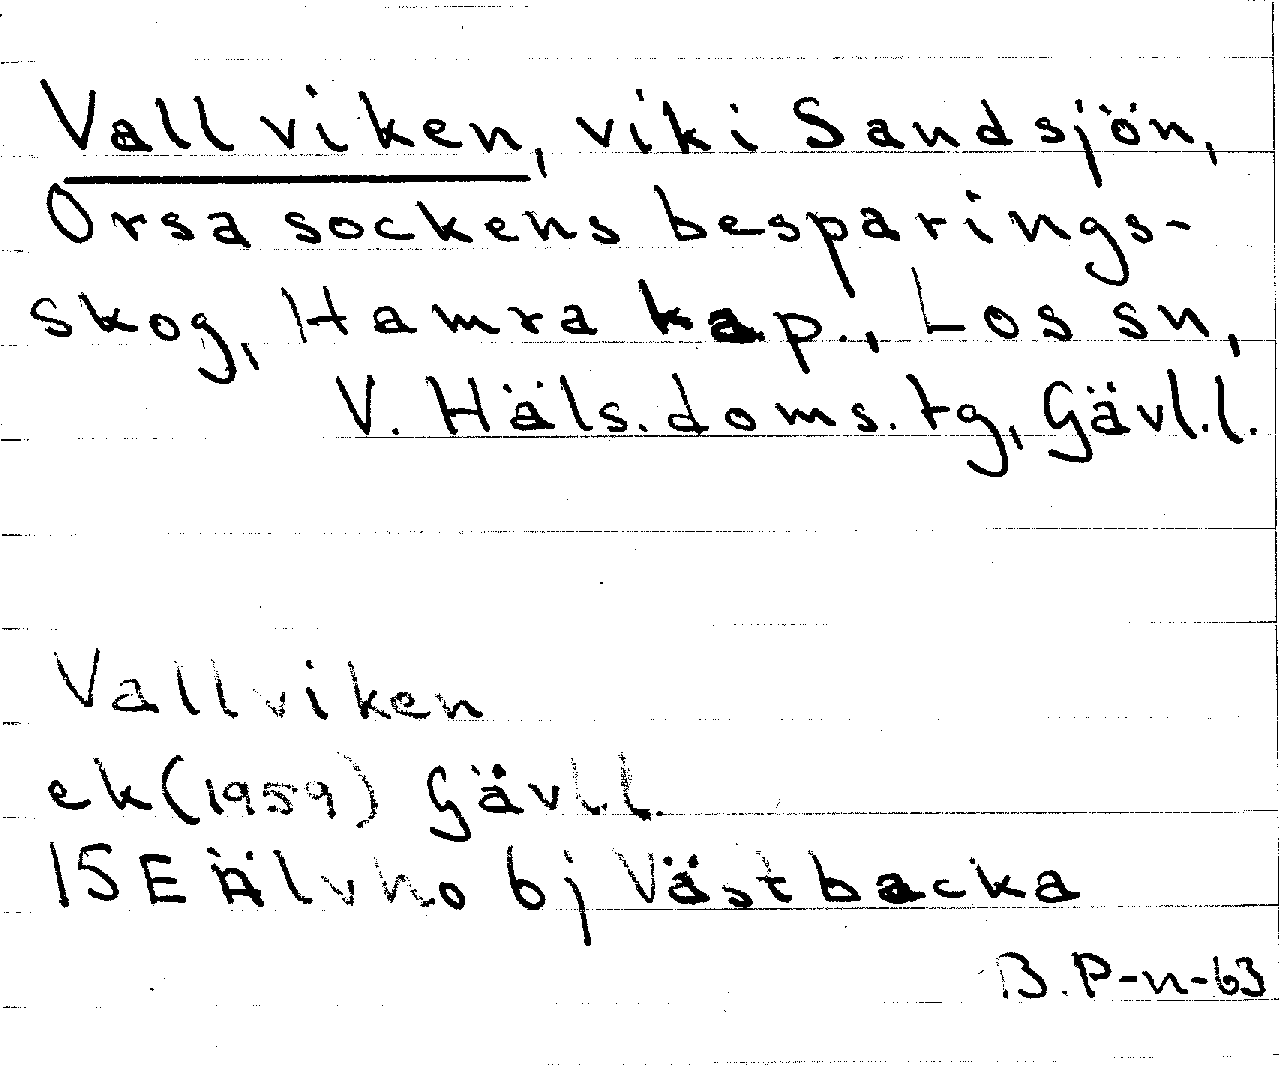 Vallviken, vik i Sandsjön,
Orsa sockens besparings-
skog, Hamra kap., Los sn,
V. Häls. doms. tg, Gävl.l.
Vallviken
ek (1959) Gävl.l.
15E Älvho 6j Västbacka
B. P-n-63